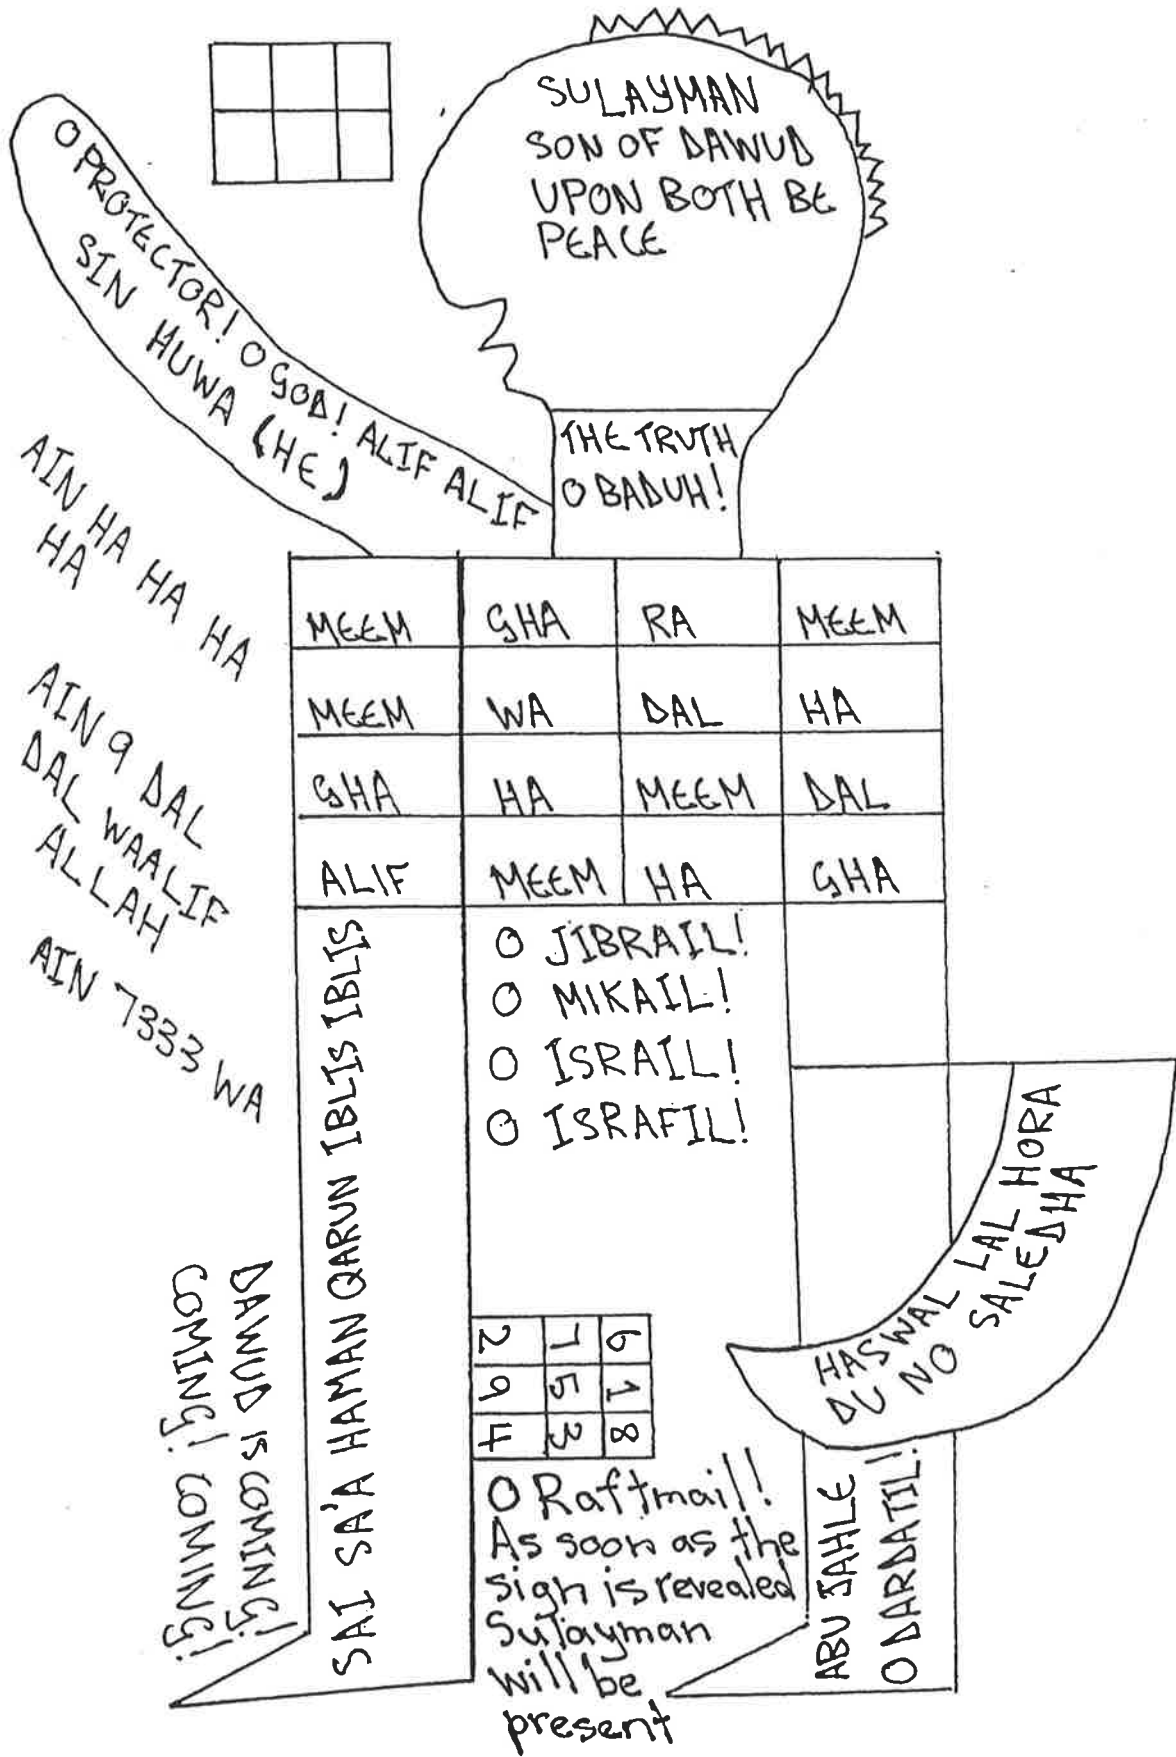 SULAYMAN
SON OF DAWUD
UPON BOTH BE
PEACE
O PROTECTOR! O GOD! ALIF ALIF
SIN HUWA (HE)
THE TRUTH
O BADUH!
AIN HA HA HA
HA
AIN 9 DAL
DAL WAALIF
ALLAH
AIN 7333 WA
MEEM GHA RA MEEM
MEEM WA DAL HA
GHA HA MEEM DAL
ALIF MEEM HA GHA
SAI SA'A HAMAN QARUN IBLIS IBLIS
O JIBRAIL!
O MIKAIL!
O ISRAIL!
O ISRAFIL!
HASWAL LAL HORA
DU NO SALEDHA
DAWUD IS COMING!
COMING! COMING!
6 1 8
7 5 3
2 9 4
O Raftmail!
As soon as the
sign is revealed
Sulayman
will be
present
ABU JAHLE
O DARDATIL!